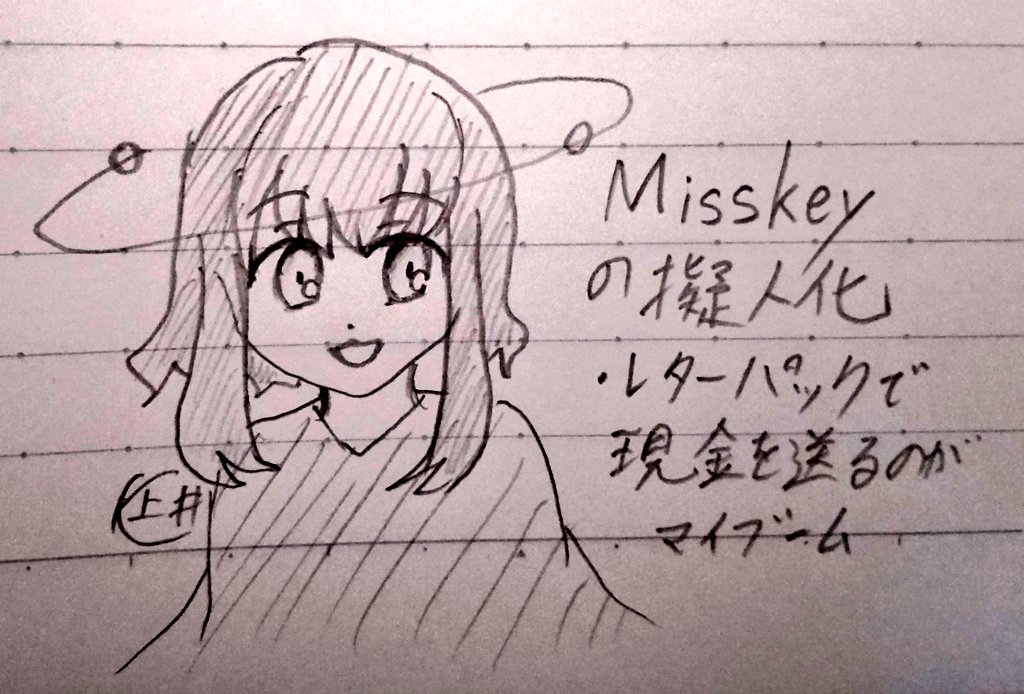 Misskey
の擬人化
・レターパックで
現金を送るのが
マイブーム
上井